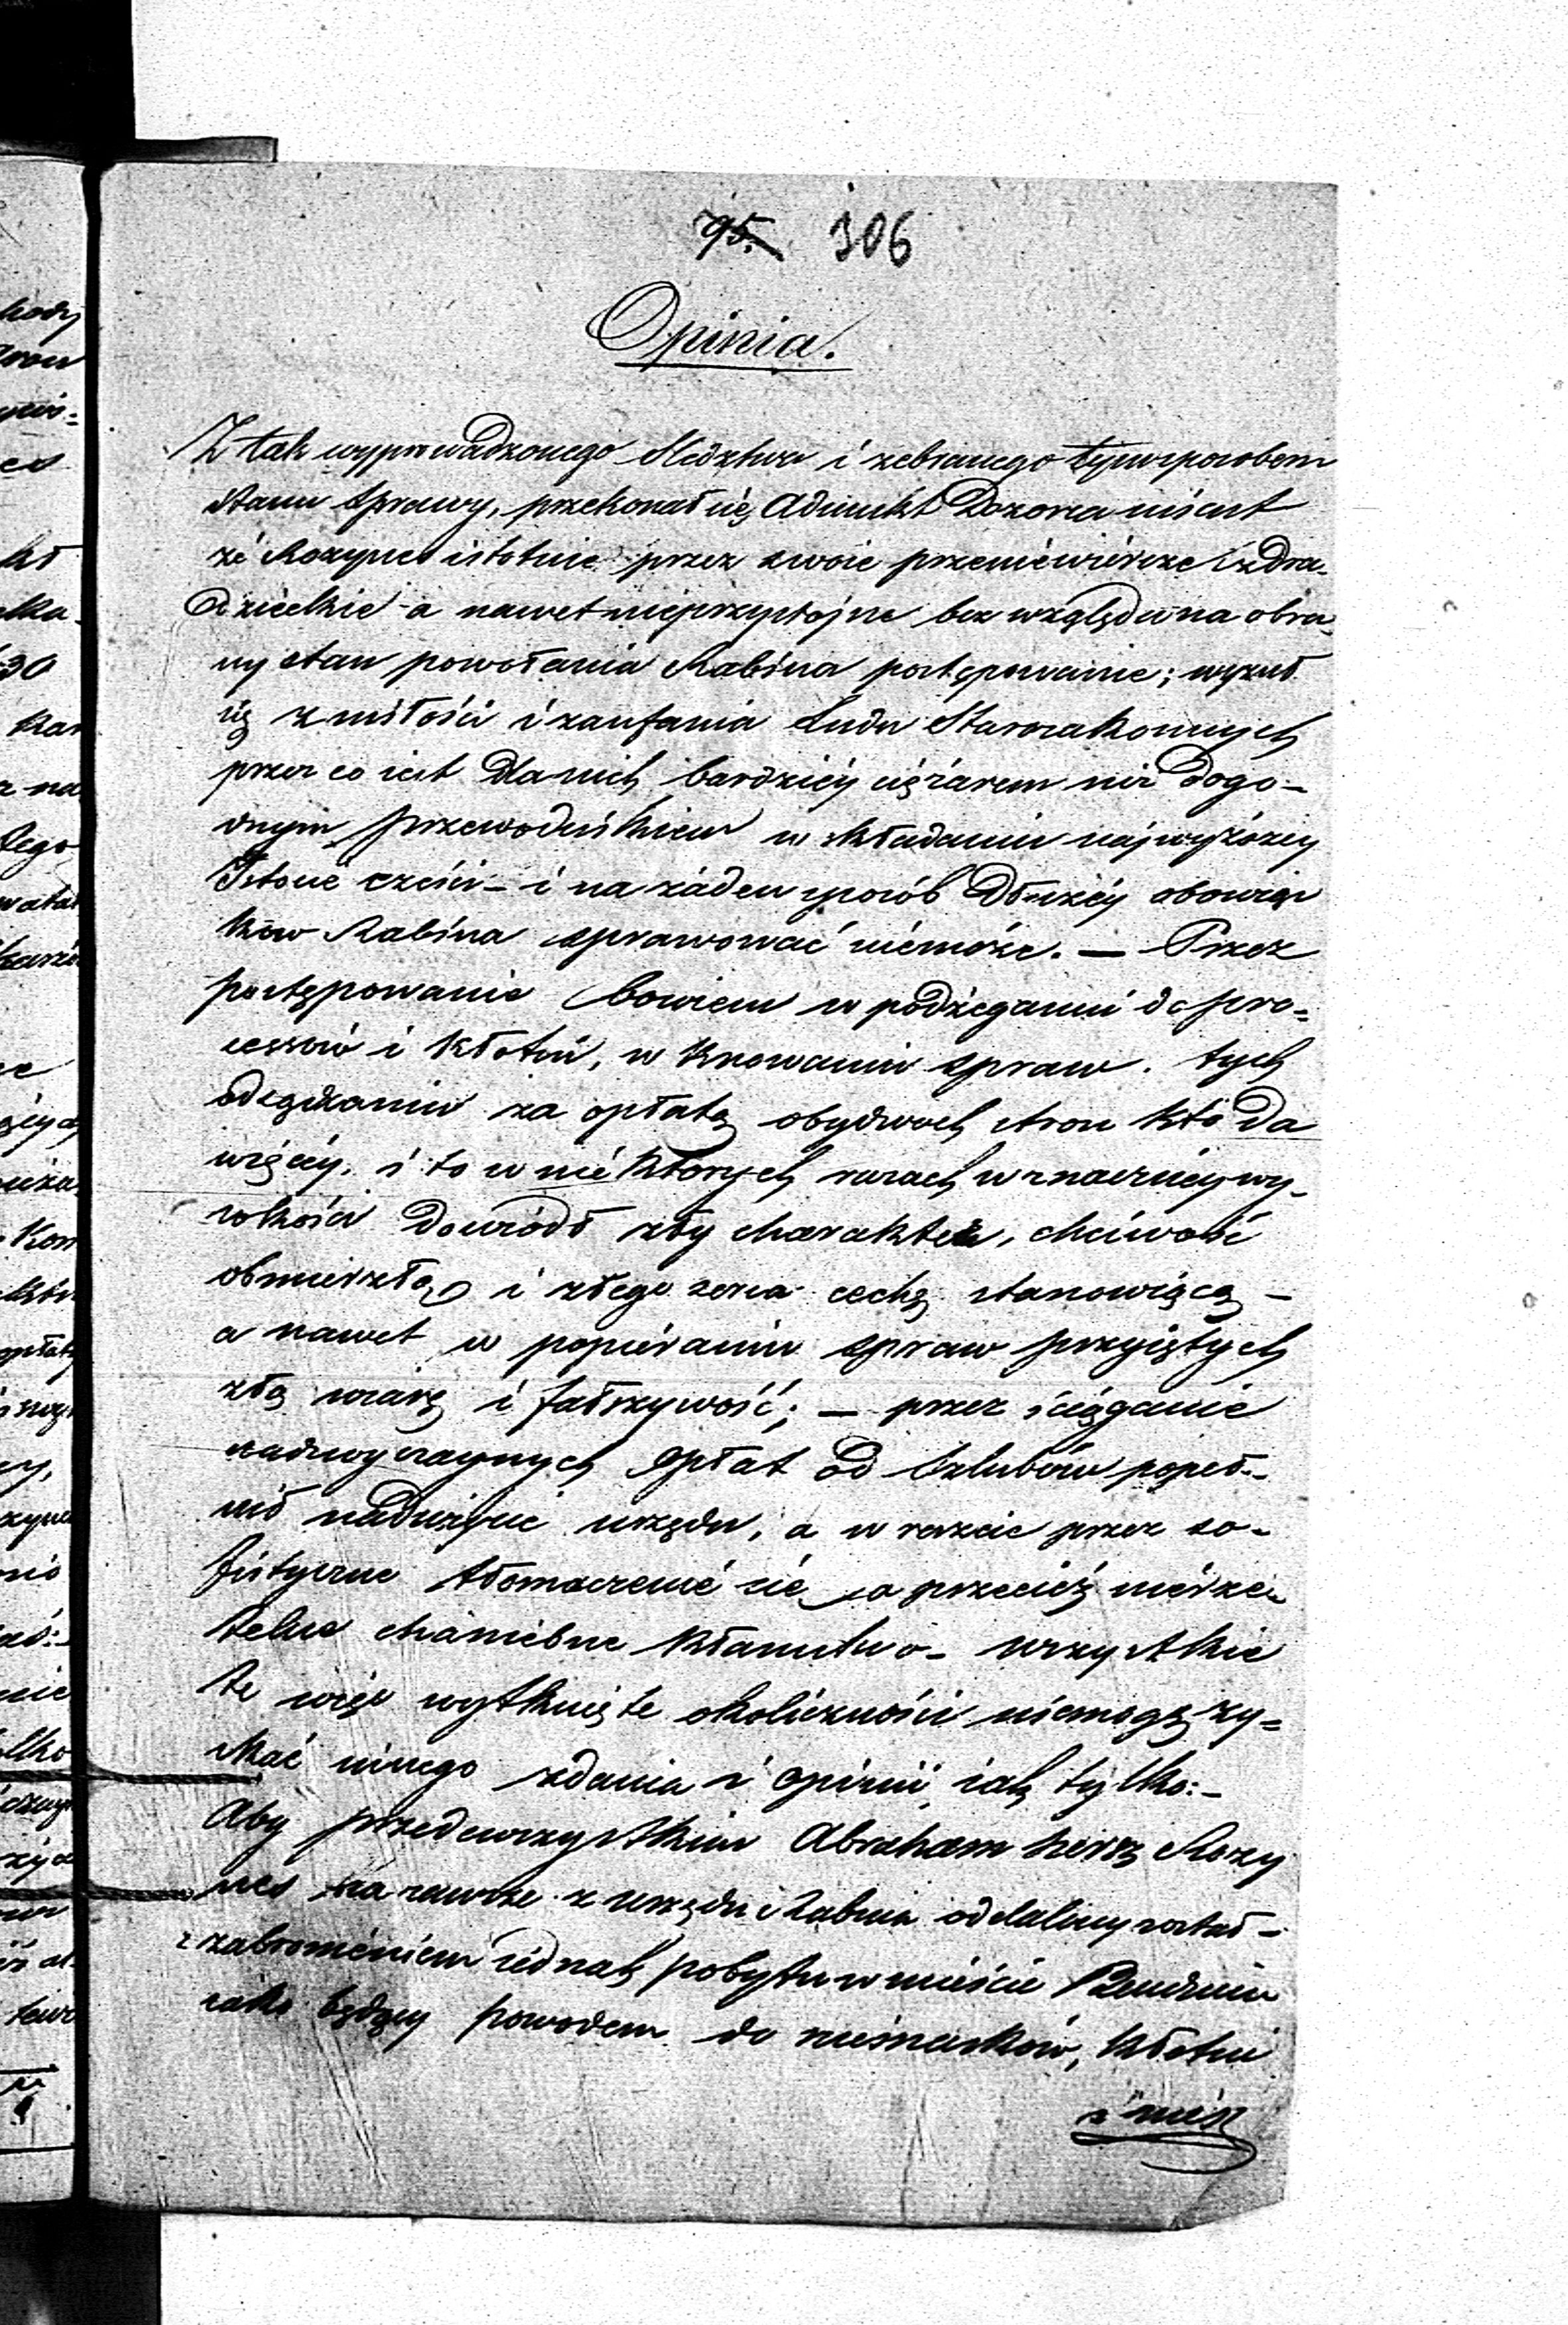 95. 306
Opinia.
Z tak wyprowadzonego Sledztwa i zebranego tymsposobem
stanu sprawy, przekonał się Adiunkt Dozorca miast
że Rozynes istotnie przez swoie przeniewiércze Zdra-
dzieckie a nawet nieprzystojne bez względu na obra-
ny stan powołania Rabina postępowanie; wyzuł
się z miłości i zaufania Ludu Starozakonnych
przez co iest dla nich bardziéy ciężarem niż dogo-
dnym przewodnikiem w składaniu najwyższey
Istocie cześci – i na żáden sposób dłużéy obowiąz
ków Rabina sprawować niemoże. — Przez
postępowanie bowiem w podżeganiu do pro-
cessów i kłótni, w knowaniu spraw. tych
odsądzaniu za opłatą obydwoch stron kto da
więcéy, i to w nié których razach w znacznéy wy-
sokości dowiódł zły charakter, chciwość
obmierzłą i złego serca cechę stanowiącą –
a nawet w popiéraniu spraw przyiętych
złą wiarę i fałszywość; — przez ściąganie
nadzwyczaynych opłat od szlubów popeł-
nił nadużycie urzędu, a w reszcie przez so-
fistyczne tłomaczenié sie a przecież niérze-
telne chaniebne kłamstwo – wszystkie
te więc wytknięte okoliczności niemogą zy-
skać innego zdania i opinii iak tylko: –
Aby przedewszystkiem Abraham Hersz Rozy
nes na zawsze z urzędu Rabina oddalony został –
z zabronieniem iednak pobytu w mieście Bendzinie
iako będący powodem do niesnasków, kłótni
i niesz